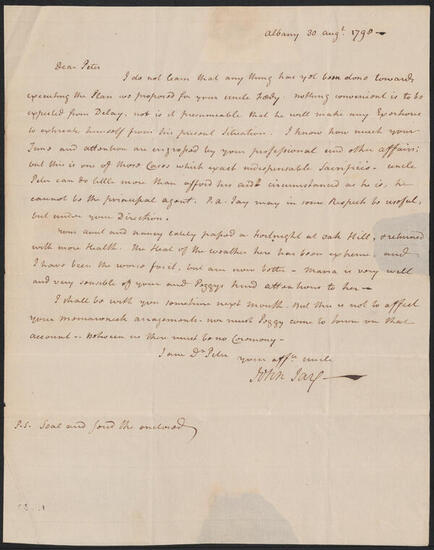 Albany 30 Augt. 1798 —
Dear Peter
I do not learn that any thing has yet been done towards
executing the Plan we proposed for your uncle Fœdy. nothing convenient is to be
expected from Delay, nor is it presumeable that he will make any Exertions
to extricate himself from his present Situation. I know how much your
Time and attention are engrossed by your professional and other affairs;
but this is one of those Cases which exact indispensable Sacrifices. uncle
Peter can do little more than afford his aid. circumstanced as he is, he
cannot be the principal agent. P. A. Jay may in some Respect be useful,
but under your Direction.
Your aunt and nancy lately passed a fortnight at Oak Hill, & returned
with more Health. The Heat of the weather here has been extreme, and
I have been the worse for it, but are now better — Maria is very well
and very sensible of your and Peggys kind attentions to her —
I shall be with you sometime next month. But this is not to affect
your Mamaroneck arrangements. nor must Peggy come to town on that
account. — Between us there must be no Ceremony. —
I am Dr. Peter your affte. uncle
John Jay —
P.S. Seal and send the enclosed